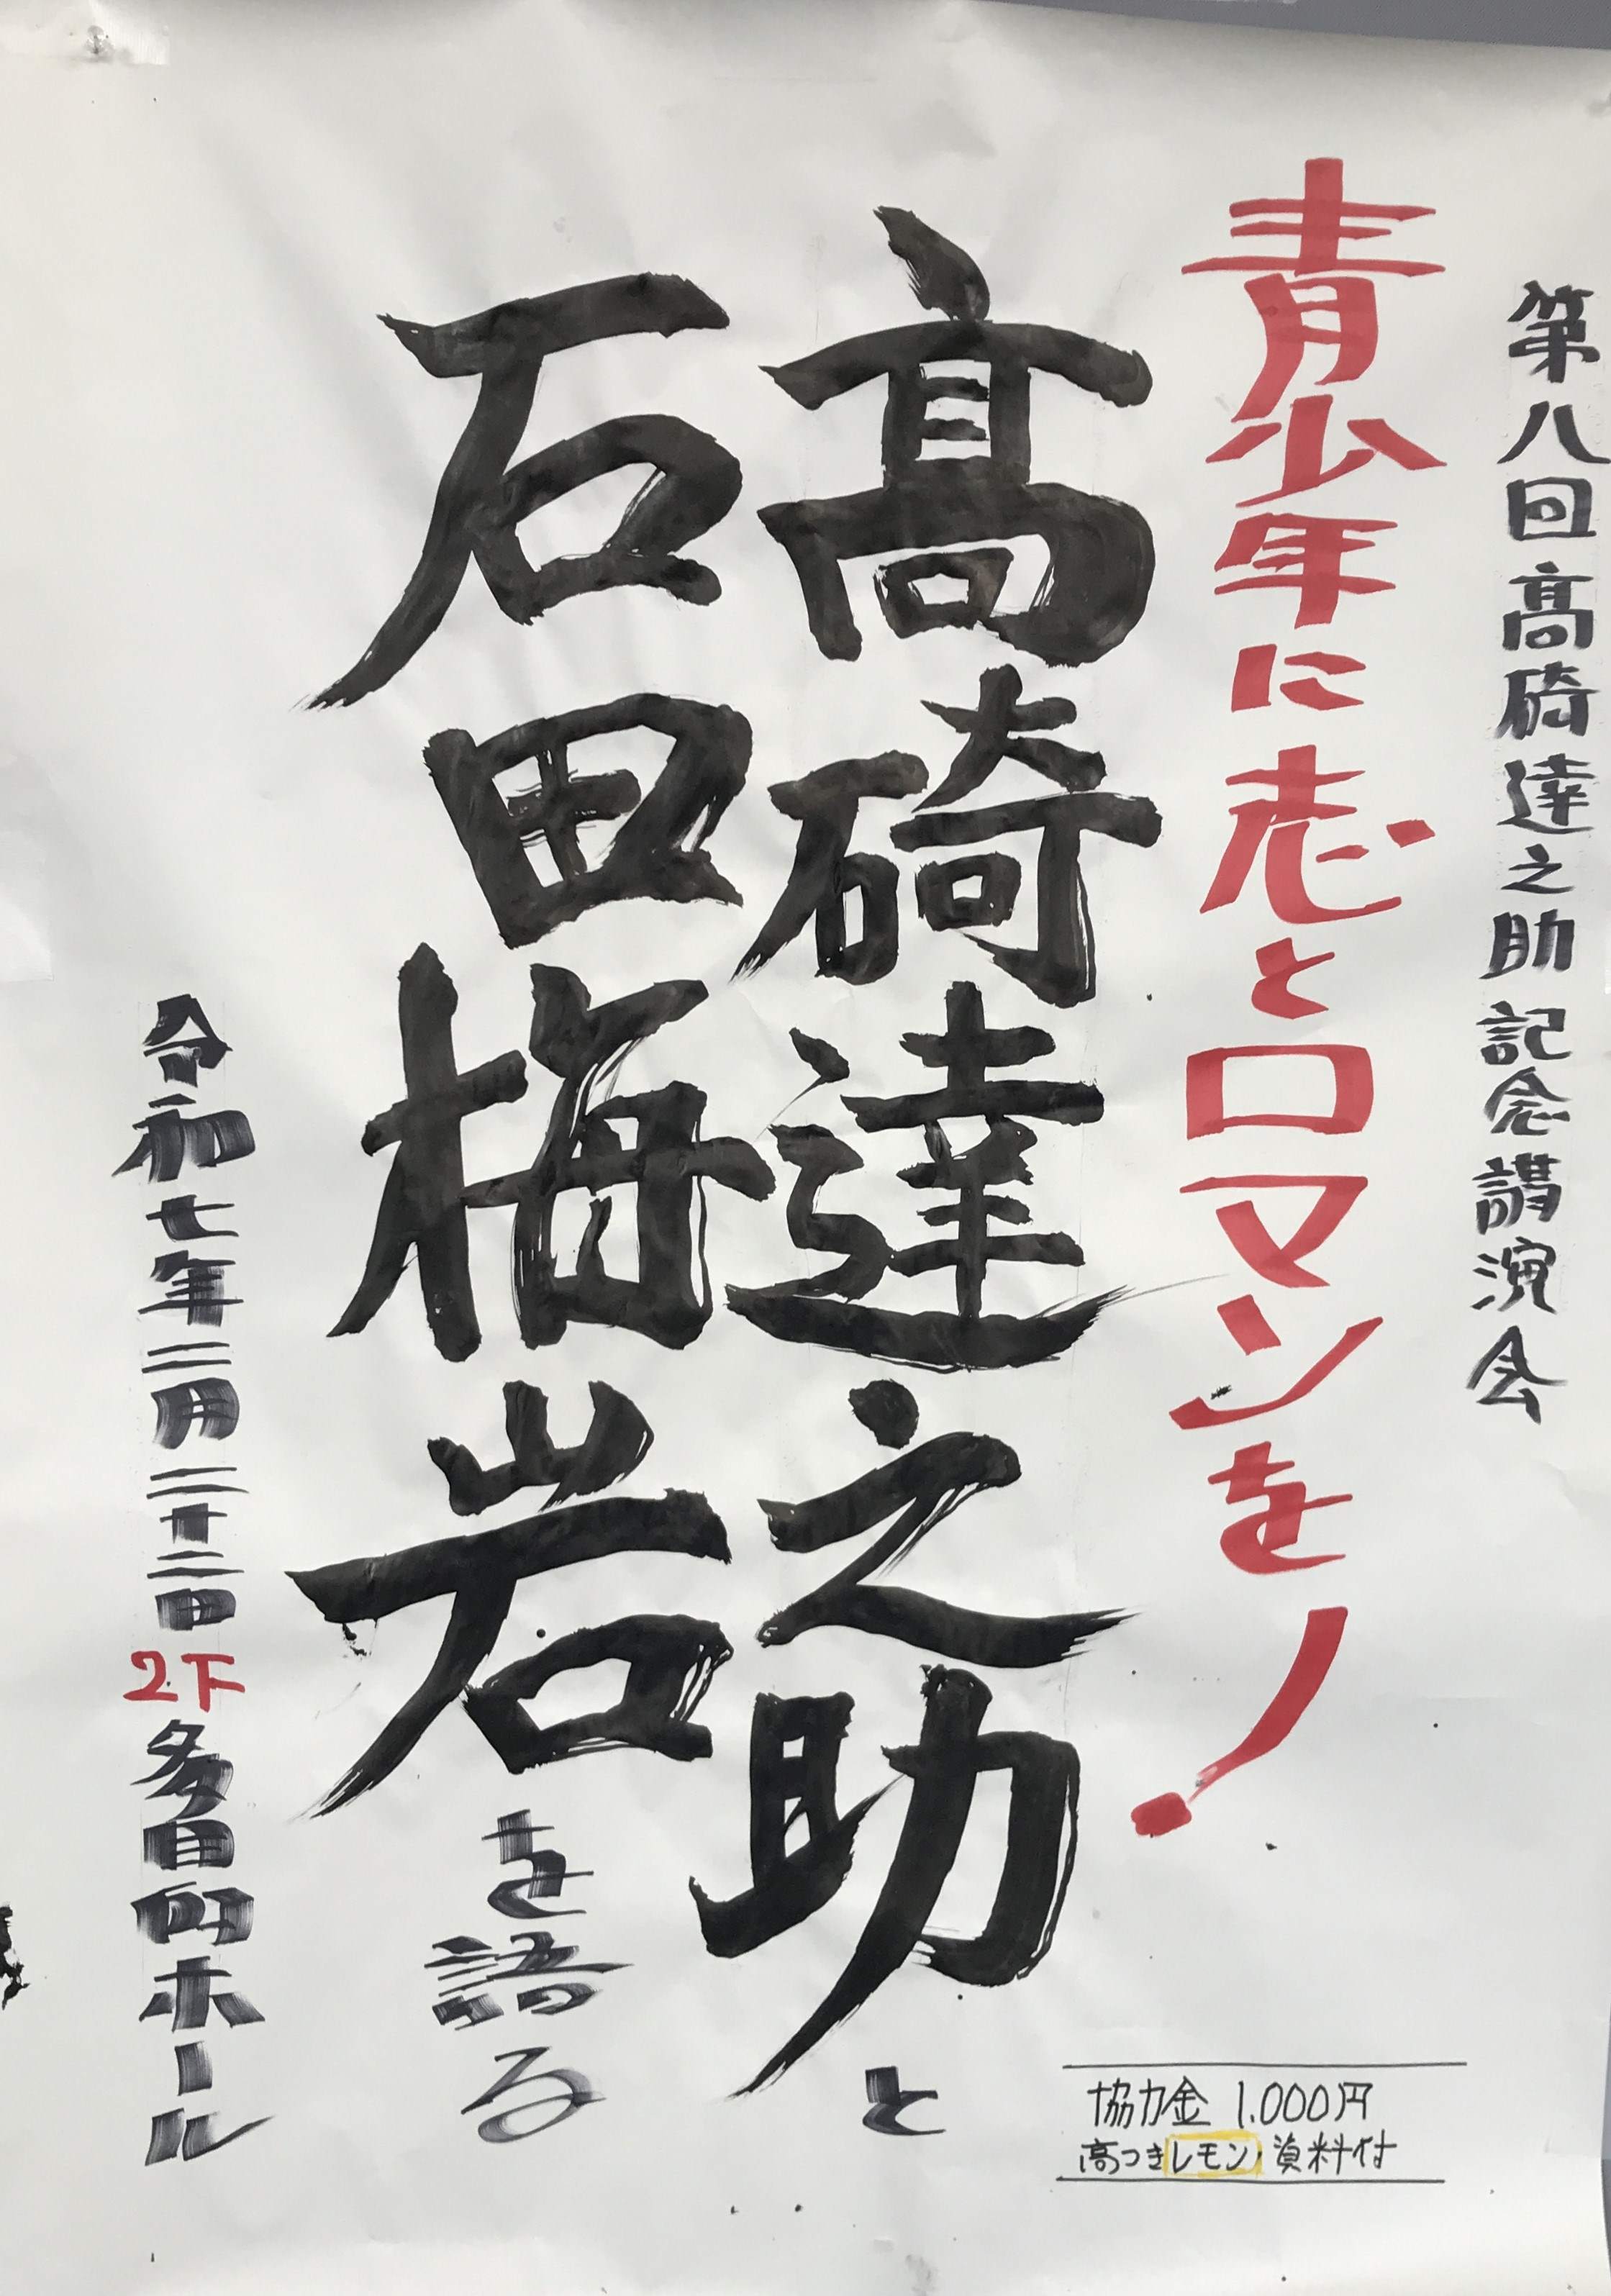 第八回髙碕達之助記念講演会
青少年に志とロマンを！
髙碕達之助と
石田梅岩を語る
令和七年二月二十二日 2下 多目的ホール
協力金 1.000円
高つきレモン、資料付